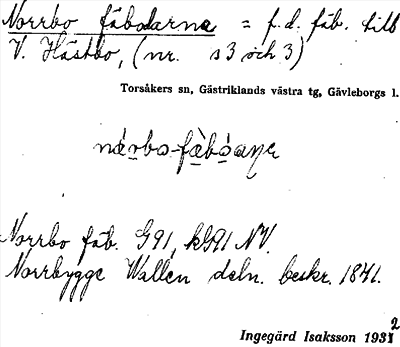 Norrbo fäbodarna = f.d. fäb. till
V. Hästbo, (nr. s3 och 3)
Torsåkers sn, Gästriklands västra tg, Gävleborgs l.
Norrbo fäb. G91, kG91 NV.
Norrbygge Wallen deln. beskr. 1841.
Ingegärd Isaksson 1932